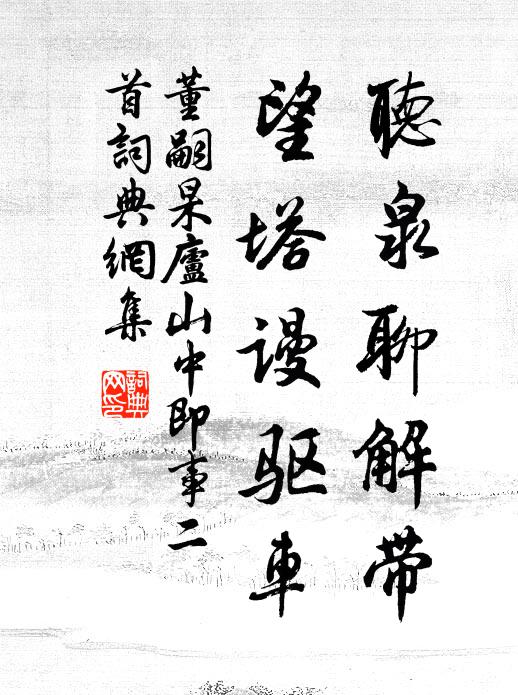 聽泉聊解帶
望塔谩驱車
董嗣杲廬山中即事二
首詞典網集
詞典
网印